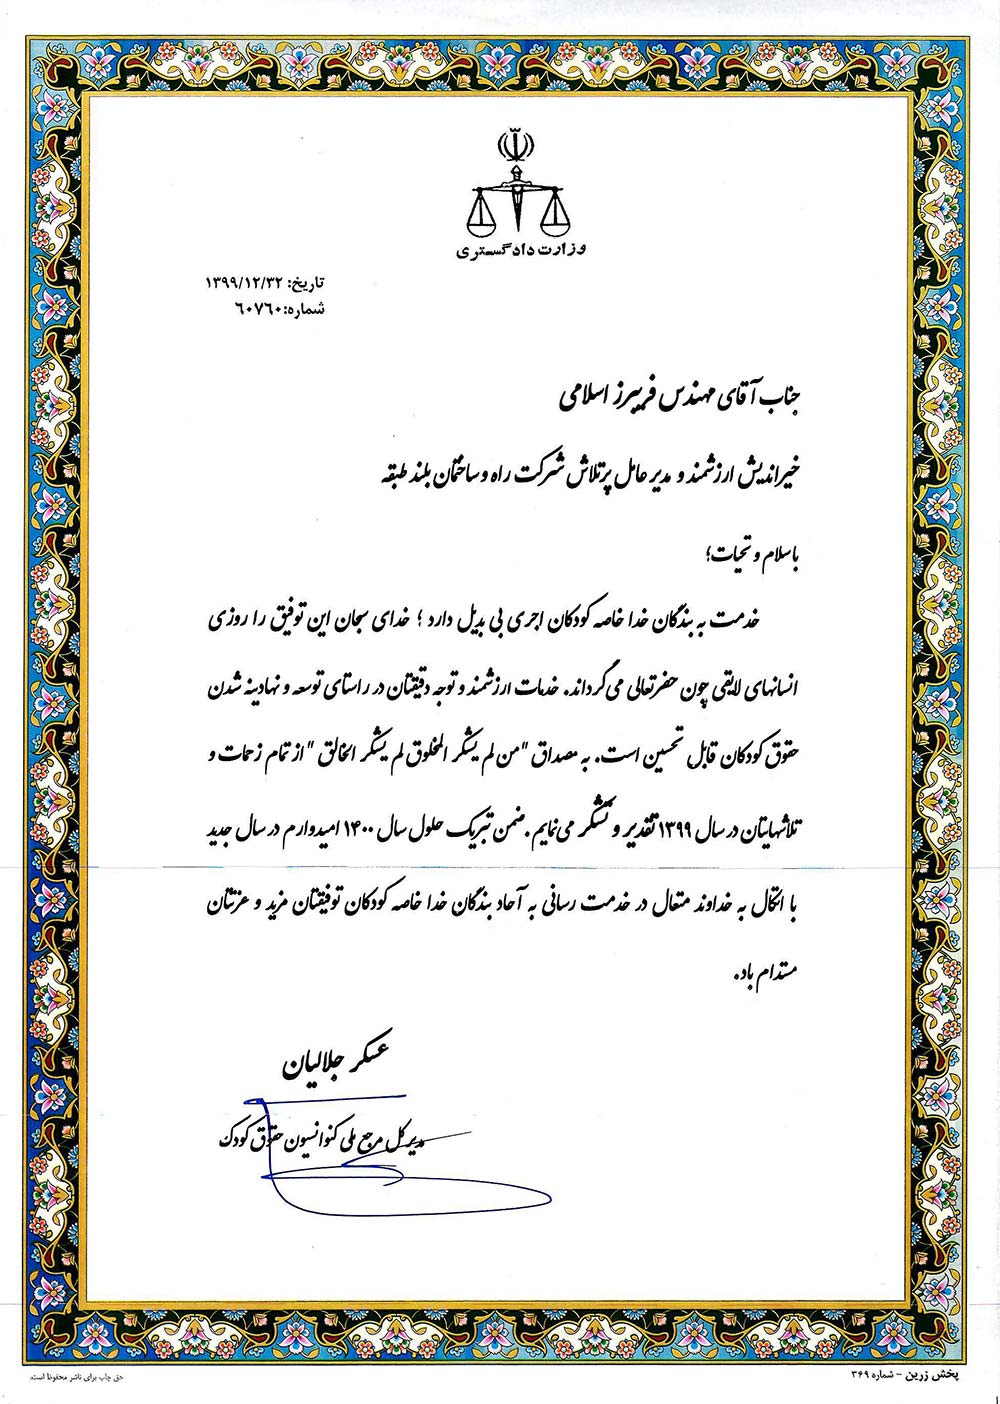 وزارت دادگستری
تاریخ: ۱۳۹۹/۱۲/۳۲
شماره:۶۰۷۶۰
جناب آقای مهندس فریبرز اسلامی
خیراندیش ارزشمند و مدیر عامل پرتلاش شرکت راه و ساختمان بلند طبقه
باسلام و تحیات؛
خدمت به بندگان خدا خاصه کودکان اجری بی بدیل دارد ؛ خدای سبحان این توفیق را روزی
انسانهای لایقی چون حضرتعالی می‌گرداند. خدمات ارزشمند و توجه دقیقتان در راستای توسعه و نهادینه شدن
حقوق کودکان قابل تحسین است. به مصداق "من لم یشکر المخلوق لم یشکر الخالق" از تمام زحمات و
تلاشهایتان در سال ۱۳۹۹ تقدیر و تشکر می‌نمایم. ضمن تبریک حلول سال ۱۴۰۰ امیدوارم در سال جدید
با اتکال به خداوند متعال در خدمت رسانی به آحاد بندگان خدا خاصه کودکان توفیقتان مزید و عزتتان
مستدام باد.
عسکر جلالیان
مدیر کل مرجع ملی کنوانسیون حقوق کودک
پخش زرین - شماره ۳۶۹
حق چاپ برای ناشر محفوظ است.